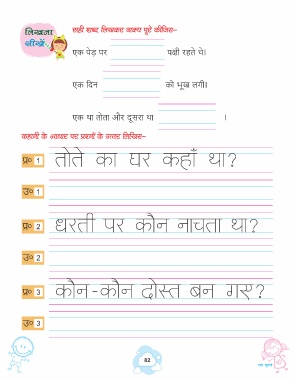 लिखना
सीखें
सही शब्द लिखकर वाक्य पूरे कीजिए–
एक पेड़ पर पक्षी रहते थे।
एक दिन को भूख लगी।
एक था तोता और दूसरा था ।
कहानी के आधार पर प्रश्नों के उत्तर लिखिए–
प्र० 1 तोते का घर कहाँ था?
उ० 1
प्र० 2 धरती पर कौन नाचता था?
उ० 2
प्र० 3 कौन-कौन दोस्त बन गए?
उ० 3
82